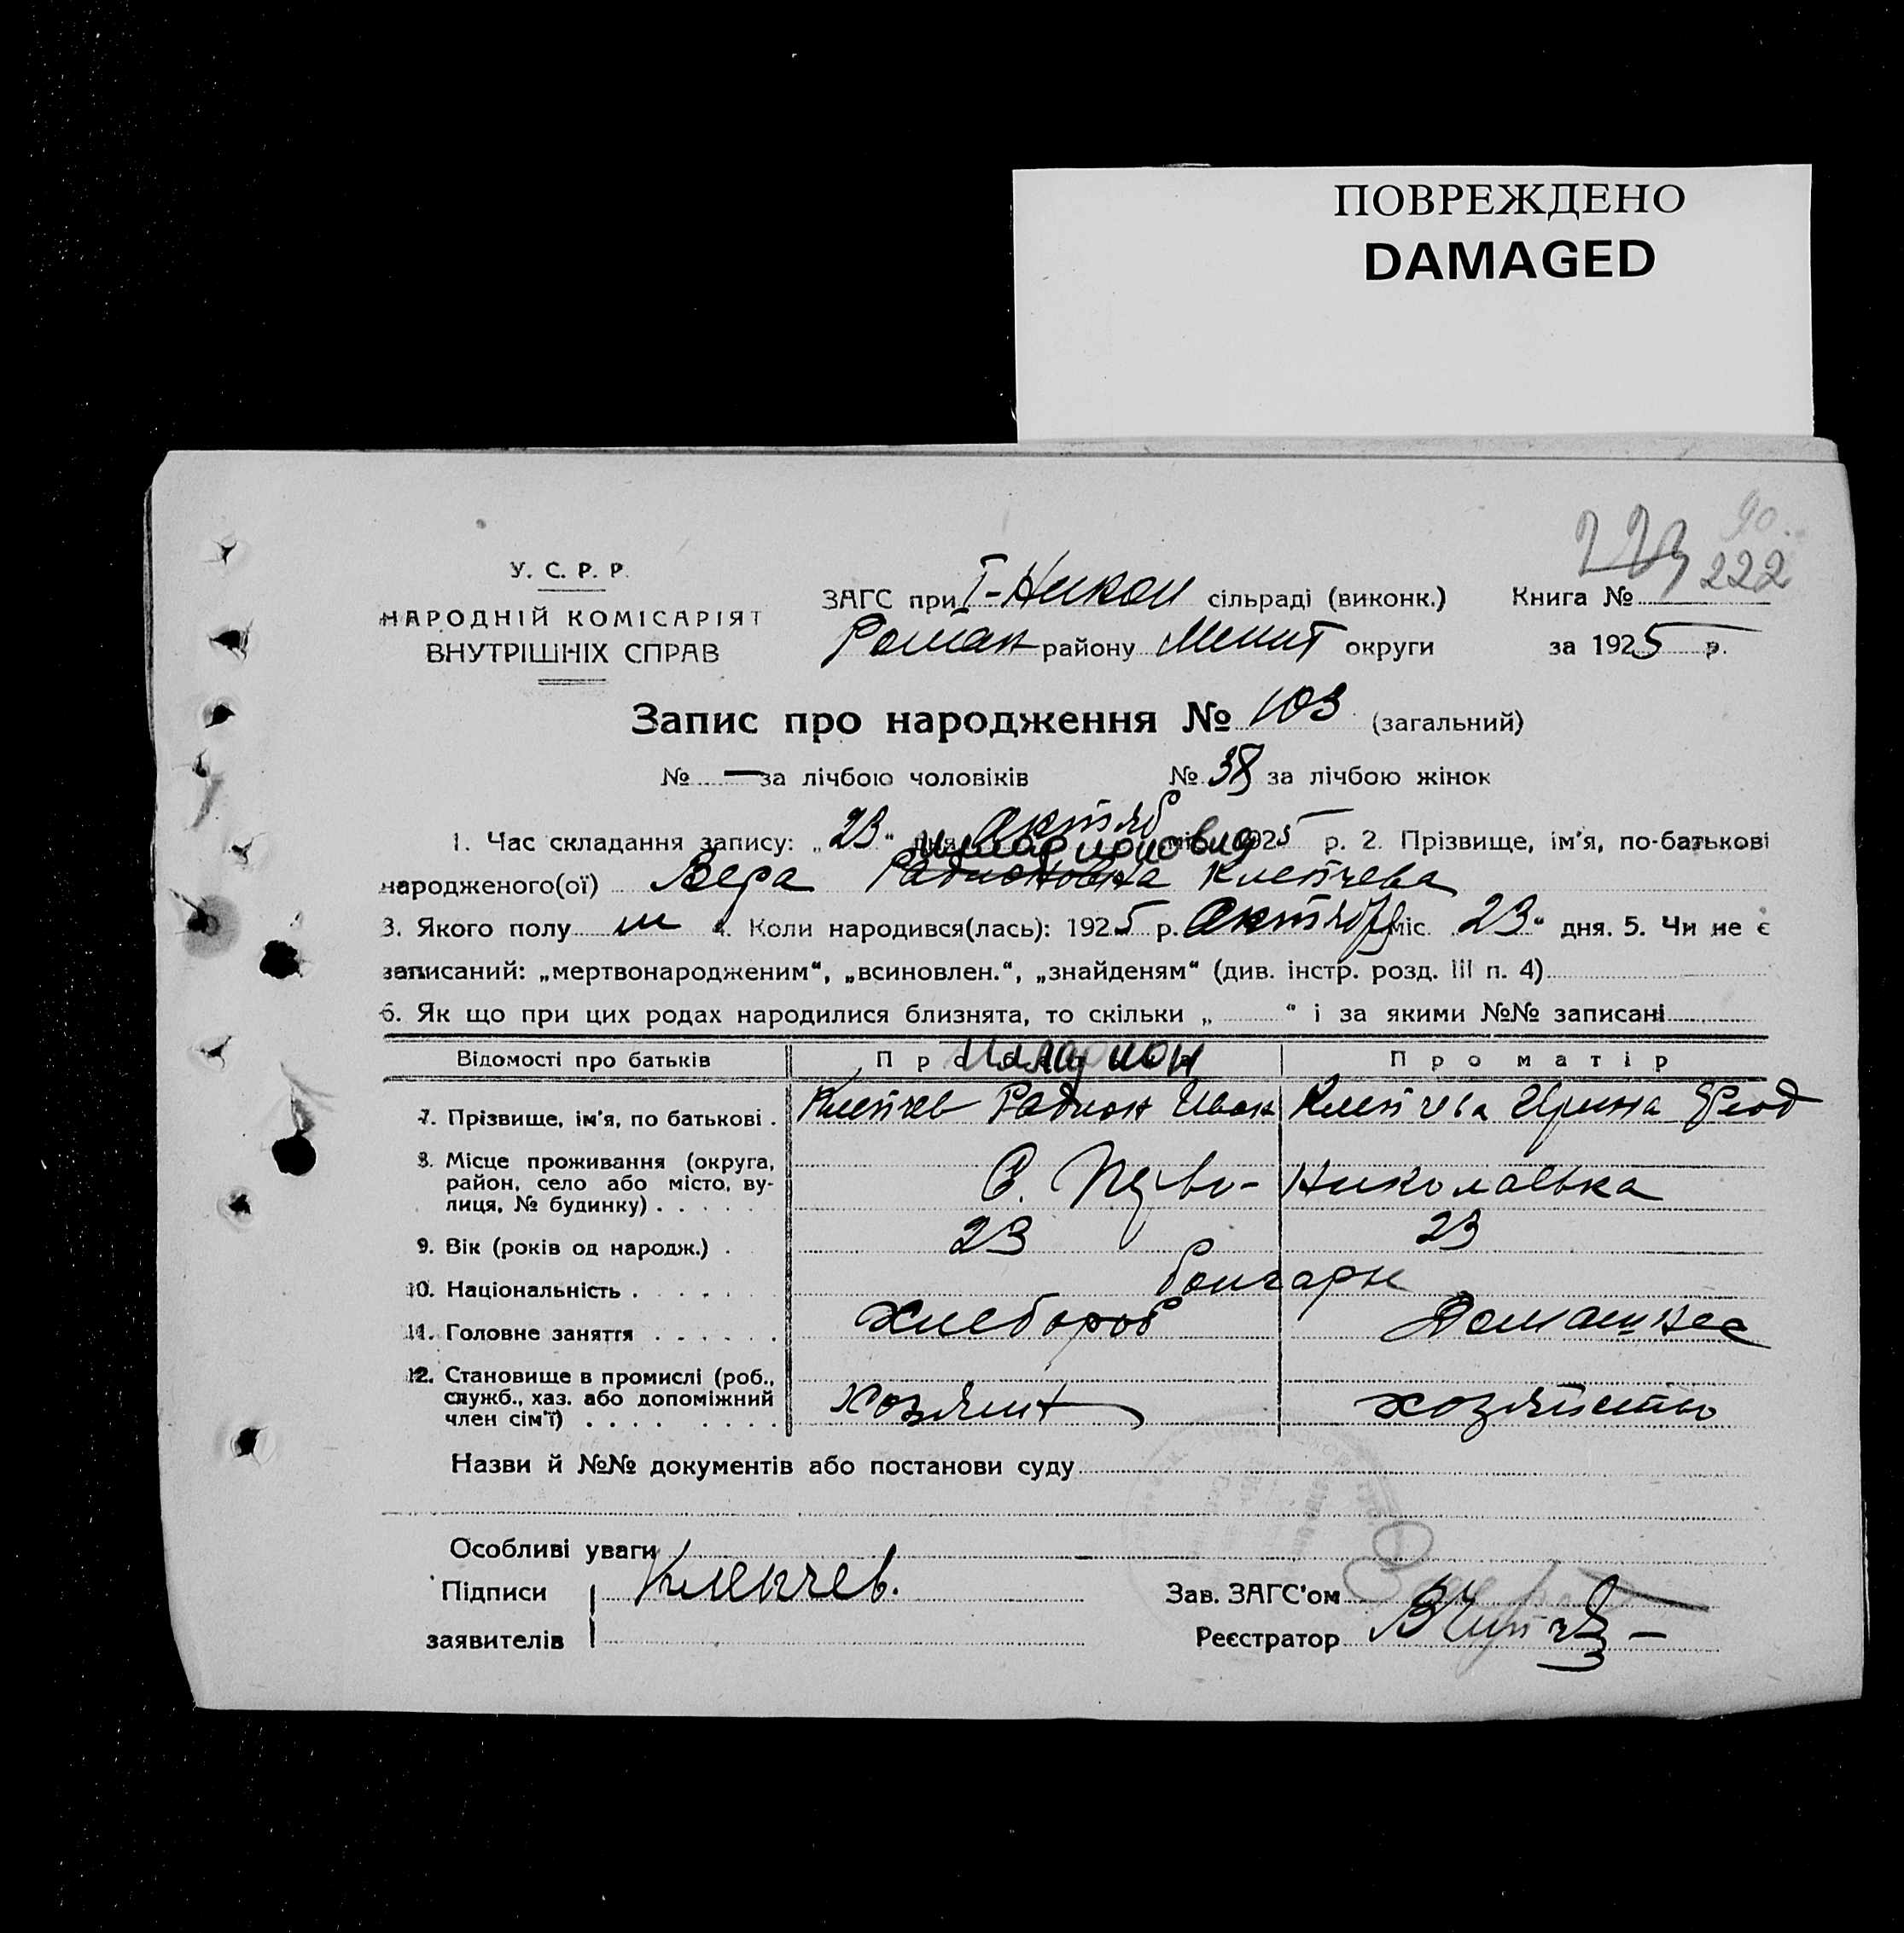 ПОВРЕЖДЕНО
DAMAGED
90
223 222
У. С. Р. Р.
НАРОДНІЙ КОМІСАРІЯТ
ВНУТРІШНІХ СПРАВ
ЗАГС при І-Никол сільраді (виконк.) Книга №
Роман району Мелит округи за 1925 р.
Запис про народження № 103 (загальний)
№ — за лічбою чоловіків № 38 за лічбою жінок
1. Час складання запису: „23“ дня Октяб міс. 1925 р. 2. Прізвище, ім'я, по-батькові
Илларионовна
народженого(ої) Вера Радионовна Клепчева
3. Якого полу ж 4. Коли народився(лась): 1925 р. Октябр міс. 23“ дня. 5. Чи не є
записаний: „мертвонародженим“, „всиновлен.“, „знайденям“ (див. інстр. розд. III п. 4)
6. Як що при цих родах народилися близнята, то скільки „ “ і за якими №№ записані
Відомості про батьків Про батька Про матір
Иларион
7. Прізвище, ім'я, по батькові . Клепчев Радион Иван Клепчева Ирина Феод
8. Місце проживання (округа, район, село або місто, вулиця, № будинку) . . . . . . С. Перво-Николаевка
9. Вік (років од народж.) . 23 23
10. Національність . . . . . . болгары
11. Головне заняття . . . . . . Хлебороб Домашнее
12. Становище в промислі (роб., служб., хаз. або допоміжний член сім'ї) . . . . . . . . Хозяин хозяйство
Назви й №№ документів або постанови суду
Особливі уваги
Підписи Клепчев.
Зав. ЗАГС'ом
заявителів
Реєстратор